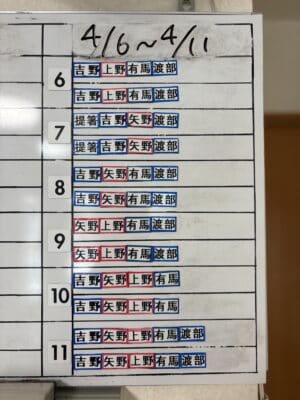 4/6~4/11
6
吉野 上野 有馬 渡部
吉野 上野 有馬 渡部
7
提箸 吉野 矢野 渡部
提箸 吉野 矢野 渡部
8
吉野 矢野 有馬 渡部
吉野 矢野 有馬 渡部
9
矢野 上野 有馬 渡部
矢野 上野 有馬 渡部
10
吉野 矢野 上野 有馬
吉野 矢野 上野 有馬
11
吉野 矢野 上野 有馬 渡部
吉野 矢野 上野 有馬 渡部